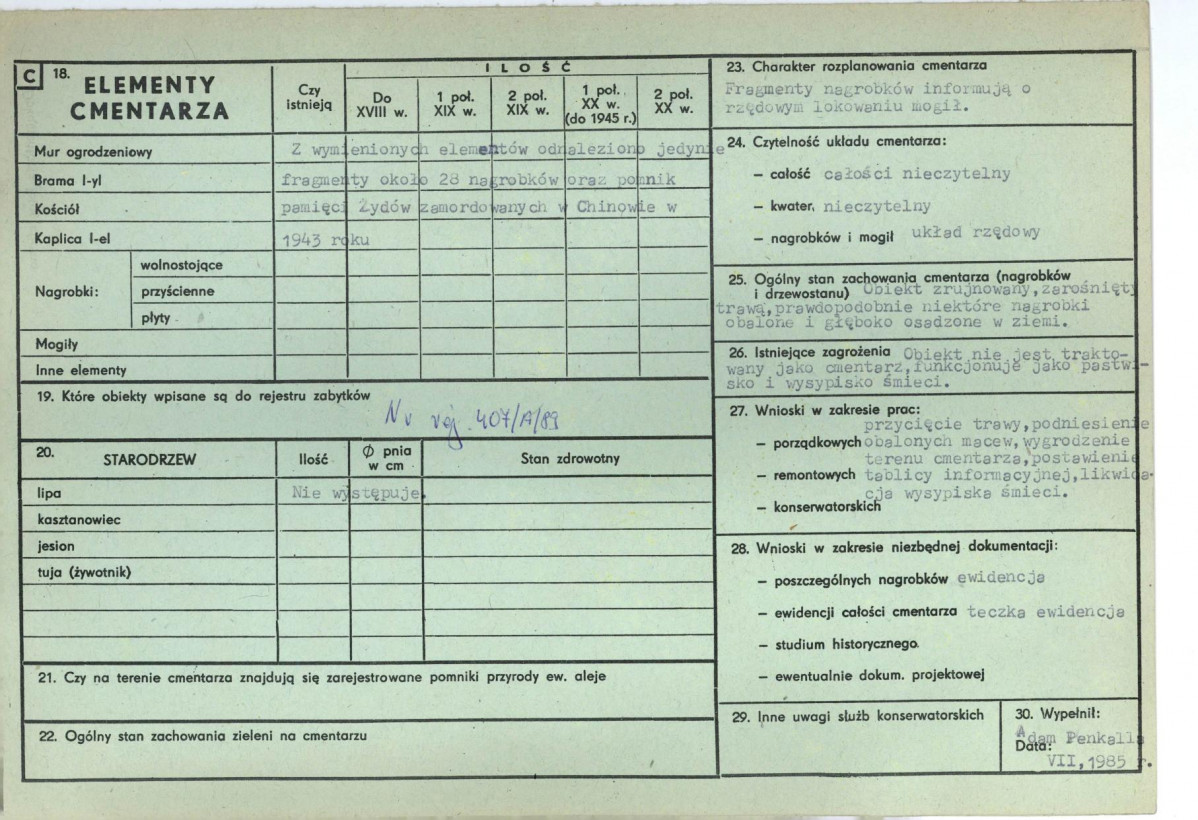 C 18. ELEMENTY
CMENTARZA
Czy
istnieją
I L O Ś Ć
Do
XVIII w.
1 poł.
XIX w.
2 poł.
XIX w.
1 poł.
XX w.
(do 1945 r.)
2 poł.
XX w.
Mur ogrodzeniowy Z wymienionych elementów odnaleziono jedynie
Brama I-yl fragmenty około 28 nagrobków oraz pomnik
Kościół pamięci Żydów zamordowanych w Chinowie w
Kaplica I-el 1943 roku
Nagrobki:
wolnostojące
przyścienne
płyty
Mogiły
Inne elementy
19. Które obiekty wpisane są do rejestru zabytków
Nr rej. 407/A/89
20. STARODRZEW Ilość Ø pnia
w cm
Stan zdrowotny
lipa Nie występuje.
kasztanowiec
jesion
tuja (żywotnik)
21. Czy na terenie cmentarza znajdują się zarejestrowane pomniki przyrody ew. aleje
22. Ogólny stan zachowania zieleni na cmentarzu
23. Charakter rozplanowania cmentarza
Fragmenty nagrobków informują o
rzędowym lokowaniu mogił.
24. Czytelność układu cmentarza:
– całość całości nieczytelny
– kwater. nieczytelny
– nagrobków i mogił układ rzędowy
25. Ogólny stan zachowania cmentarza (nagrobków
i drzewostanu) Obiekt zrujnowany,zarośnięty
trawą,prawdopodobnie niektóre nagrobki
obalone i głęboko osadzone w ziemi.
26. Istniejące zagrożenia Obiekt nie jest trakto-
wany jako cmentarz,funkcjonuje jako pastwi-
sko i wysypisko śmieci.
27. Wnioski w zakresie prac:
przycięcie trawy,podniesienie
– porządkowych obalonych macew,wygrodzenie
terenu cmentarza,postawienie
– remontowych tablicy informacyjnej,likwida-
cja wysypiska śmieci.
– konserwatorskich
28. Wnioski w zakresie niezbędnej dokumentacji:
– poszczególnych nagrobków ewidencja
– ewidencji całości cmentarza teczka ewidencja
– studium historycznego
– ewentualnie dokum. projektowej
29. Inne uwagi służb konserwatorskich
30. Wypełnił:
Adam Penkalla
Data:
VII,1985 r.